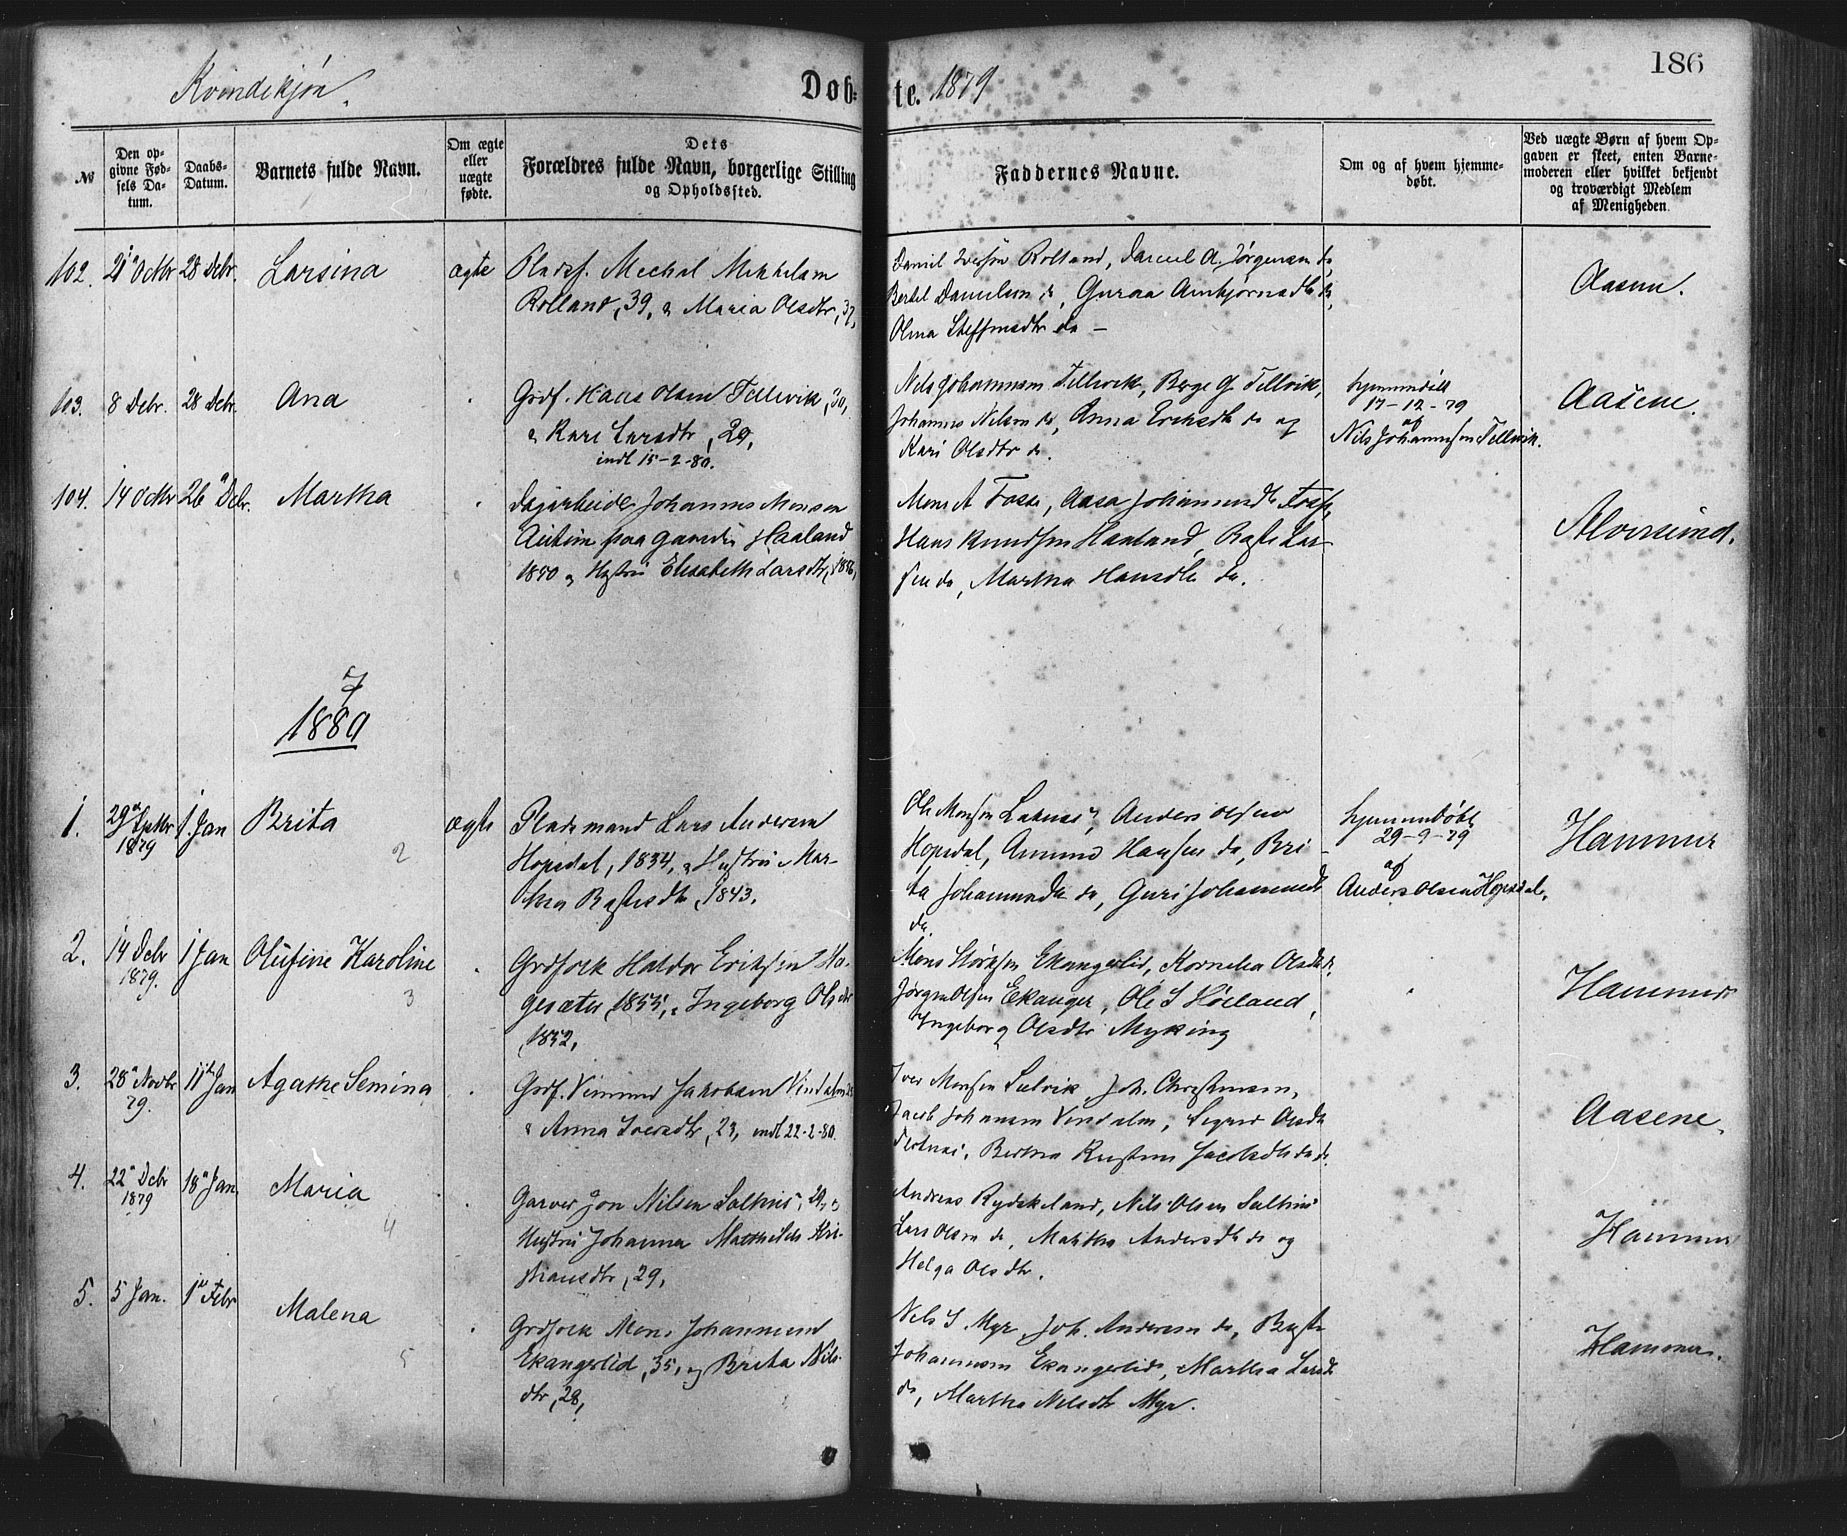 186
Kvindekjøn.
Døb-
te. 1879
№
Den op-
givne Fød-
sels Da-
tum.
Daabs-
Datum.
Barnets fulde Navn.
Om ægte
eller
uægte
fødte.
Dets
Forældres fulde Navn, borgerlige Stilling
og Opholdssted.
Faddernes Navne.
Om og af hvem hjemme-
døbt.
Ved uægte Børn af hvem Op-
gaven er skeet, enten Barne-
moderen eller hvilket bekjendt
og troværdigt Medlem
af Menigheden.
102. 21 Octbr 28 Debr. Larsina ægte
Pladsf. Mechal Mikkelsen
Rolland, 39, & Maria Olsdtr, 37,
Daniel Iversen Rolland, Daniel A. Jørgensen do,
Bertel Danielsen do, Guroa Ambjørnsdtr do,
Olina Steffensdtr do —
Aasene.
103. 8 Debr. 28 Debr. Ana
Grdf. Hans Olsen Tellevik, 30,
& Kari Larsdtr, 29,
indl 15-2-80.
Nils Johannesen Tellevik, Berge O Tellvik,
Johannes Nilsen do, Anna Eriksdtr do og
Kari Olsdtr do.
hjemmedøbt
17-12-79
af
Nils Johannesen Tellvik.
Aasene.
104. 14 Octbr 26 Debr. Martha
Dagarbeider Johannes Monsen
paa gaarden Haaland
1850 og Hustru Elisabeth Larsdtr, 1856,
Mons A Fosse, Aasa Johannesdtr Fosse,
Hans Knudsen Haaland, Raste Lar-
sen do, Martha Hansdtr do.
Alversund.
1880
1. 29 Septbr 1 Jan Brita ægte
1879
2
Pladsmand Lars Andersen
Hopsdal, 1834, & Hustru Mar-
tha Rastesdtr, 1843.
Ole Monsen Anders Olsen
Hopsdal, Amund Hansen do, Bri-
ta Johannesdtr do, Guri Johannesdtr
do.
hjemmedøbt
29-9-79
af
Anders Olsen Hopsdal.
Hammer
2. 14 Debr 1 Jan Olufine Karoline
1879.
3
Grdfolk Haldor Eriksen Ha-
gesæter, 1855, & Ingeborg Olsdtr
1852,
Mons Størksen Ekangerlid, Kornelia Olsdtr do,
Jørgen Olsen Ekanger, Ole S Høeland,
Ingeborg Olsdtr Myking
Hammer
3. 28 Novbr 11 Jan Agathe Semina
79.
Grdf. Vimund Jakobsen Vindalen
& Anna Iversdtr, 23, indl 22-2-80.
Iver Monsen Joh. Christensen,
Jacob Johannesen Vindalen, Sigrid Olsdtr
Flotnes, Bertha Jacobsdtr do do.
Aasene.
4. 22 Debr 18 Jan Maria
1879
4
Garver Jon Nilsen Salhus, 29, &
Hustru Johanna Mathilde Kri-
stiansdtr, 29,
Andreas Rydskeland, Nils Olsen Salhus
Lars Olsen do, Andersdtr do og
Helga Olsdtr.
Hammer
5. 5 Jan. 1 Febr Malena
5
Grdfolk Mons Johannessen
Ekangerlid, 35, og Brita Nils-
dtr, 28,
Nils S. Myr, Joh. Andersen do, Raste
Johannesen Ekangerlid, Martha Larsdtr
do, Martha Nilsdtr Myr.
Hammer.